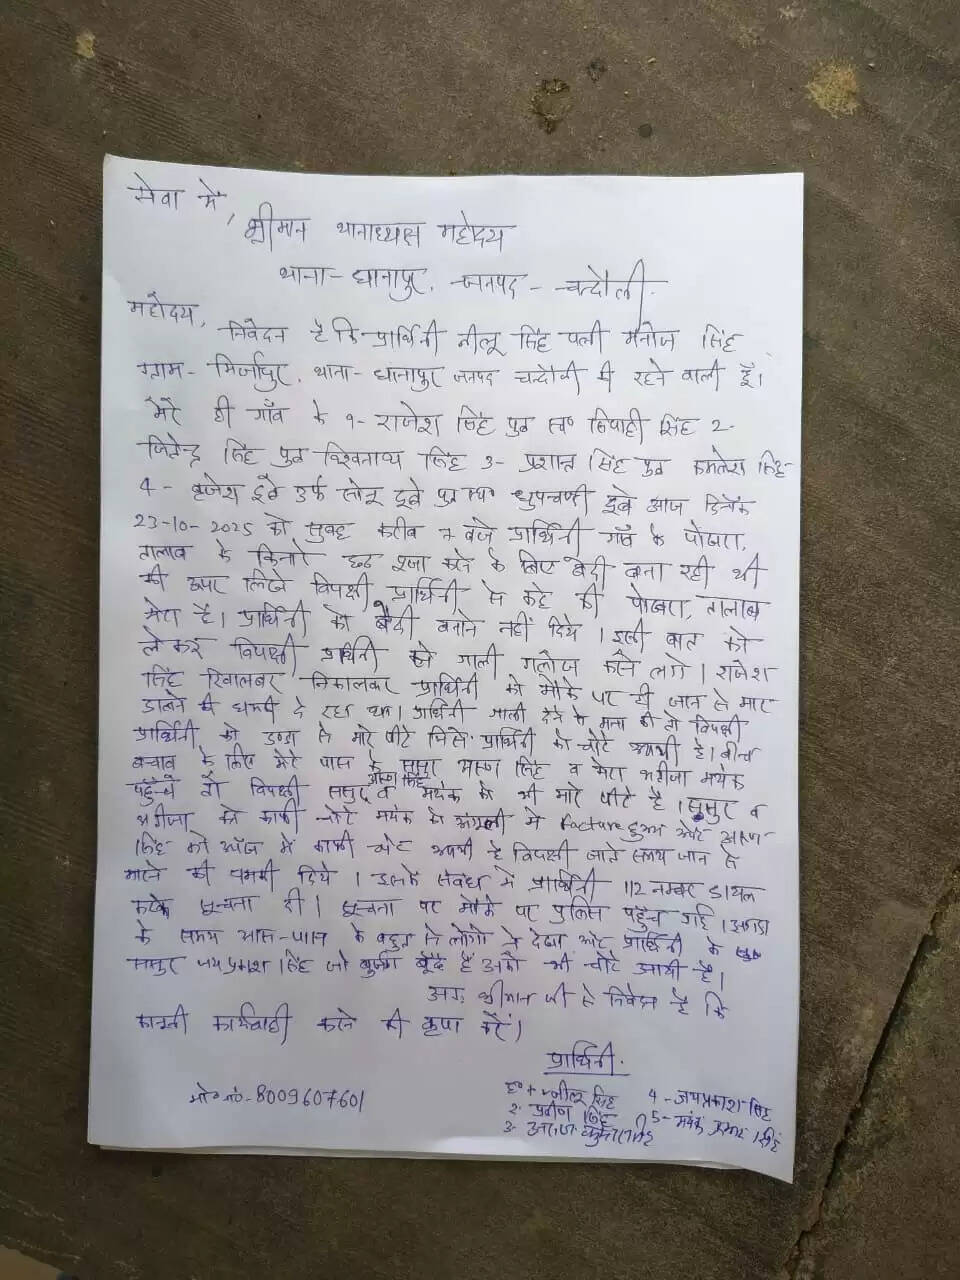 सेवा में,
श्रीमान थानाध्यक्ष महोदय
थाना- धानापुर, जनपद - चन्दौली.
महोदय,
निवेदन है कि प्रार्थिनी नीलू सिंह पत्नी मनोज सिंह
ग्राम- मिर्जापुर, थाना- धानापुर जनपद चन्दौली की रहने वाली हूँ।
मेरे ही गाँव के 1- राजेश सिंह पुत्र स्व० सिपाही सिंह 2-
जितेन्द्र सिंह पुत्र विश्वनाथ सिंह 3- प्रशान्त सिंह पुत्र कमलेश सिंह
4- बृजेश दूबे उर्फ सोनू दूबे पुत्र स्व० दूबे आज दिनाँक
23-10-2025 को सुबह करीब 7 बजे प्रार्थिनी गाँव के पोखरा,
तालाब के किनारे छठ पूजा करने के लिए बेदी बना रही थी
की उपर लिखे विपक्षी प्रार्थिनी से कहे की पोखरा, तालाब
मेरा है। प्रार्थिनी को बेदी बनाने नहीं दिये। इसी बात को
लेकर विपक्षी प्रार्थिनी को गाली गलौज करने लगे। राजेश
सिंह रिवाल्वर निकालकर प्रार्थिनी को मौके पर ही जान से मार
डालने की धमकी दे रहा था। प्रार्थिनी गाली देने से मना की तो विपक्षी
प्रार्थिनी को डण्डा से मारे पीटे जिससे प्रार्थिनी को चोटे आयी है। बीच
बचाव के लिए मेरे पास के ससुर अरुण सिंह व मेरा भतीजा मयंक
पहुँचे तो विपक्षी ससुर अरुण सिंह व मयंक को भी मारे पीटे है। ससुर व
भतीजा को काफी चोटे मयंक के अंगुली में facture हुआ और अरुण
सिंह को आँख में काफी चोट आयी है विपक्षी जाते समय जान से
मारने की धमकी दिये। इसके संबंध में प्रार्थिनी 112 नम्बर डायल
करके सूचना दी। सूचना पर मौके पर पुलिस पहुँच गई। झगडा
के समय आस-पास के बहुत से लोगो ने देखा और प्रार्थिनी के
ससुर जयप्रकाश सिंह जो बुजुर्ग बूढे है उनको भी चोटे आयी है।
अतः श्रीमान जी से निवेदन है कि
कानूनी कार्यवाही करने की कृपा करें।
प्रार्थिनी.
मो० नं०-8009607601
नीलू सिंह 4- जयप्रकाश सिंह
2- प्रवीण सिंह 5- मयंक कुमार सिंह
3-